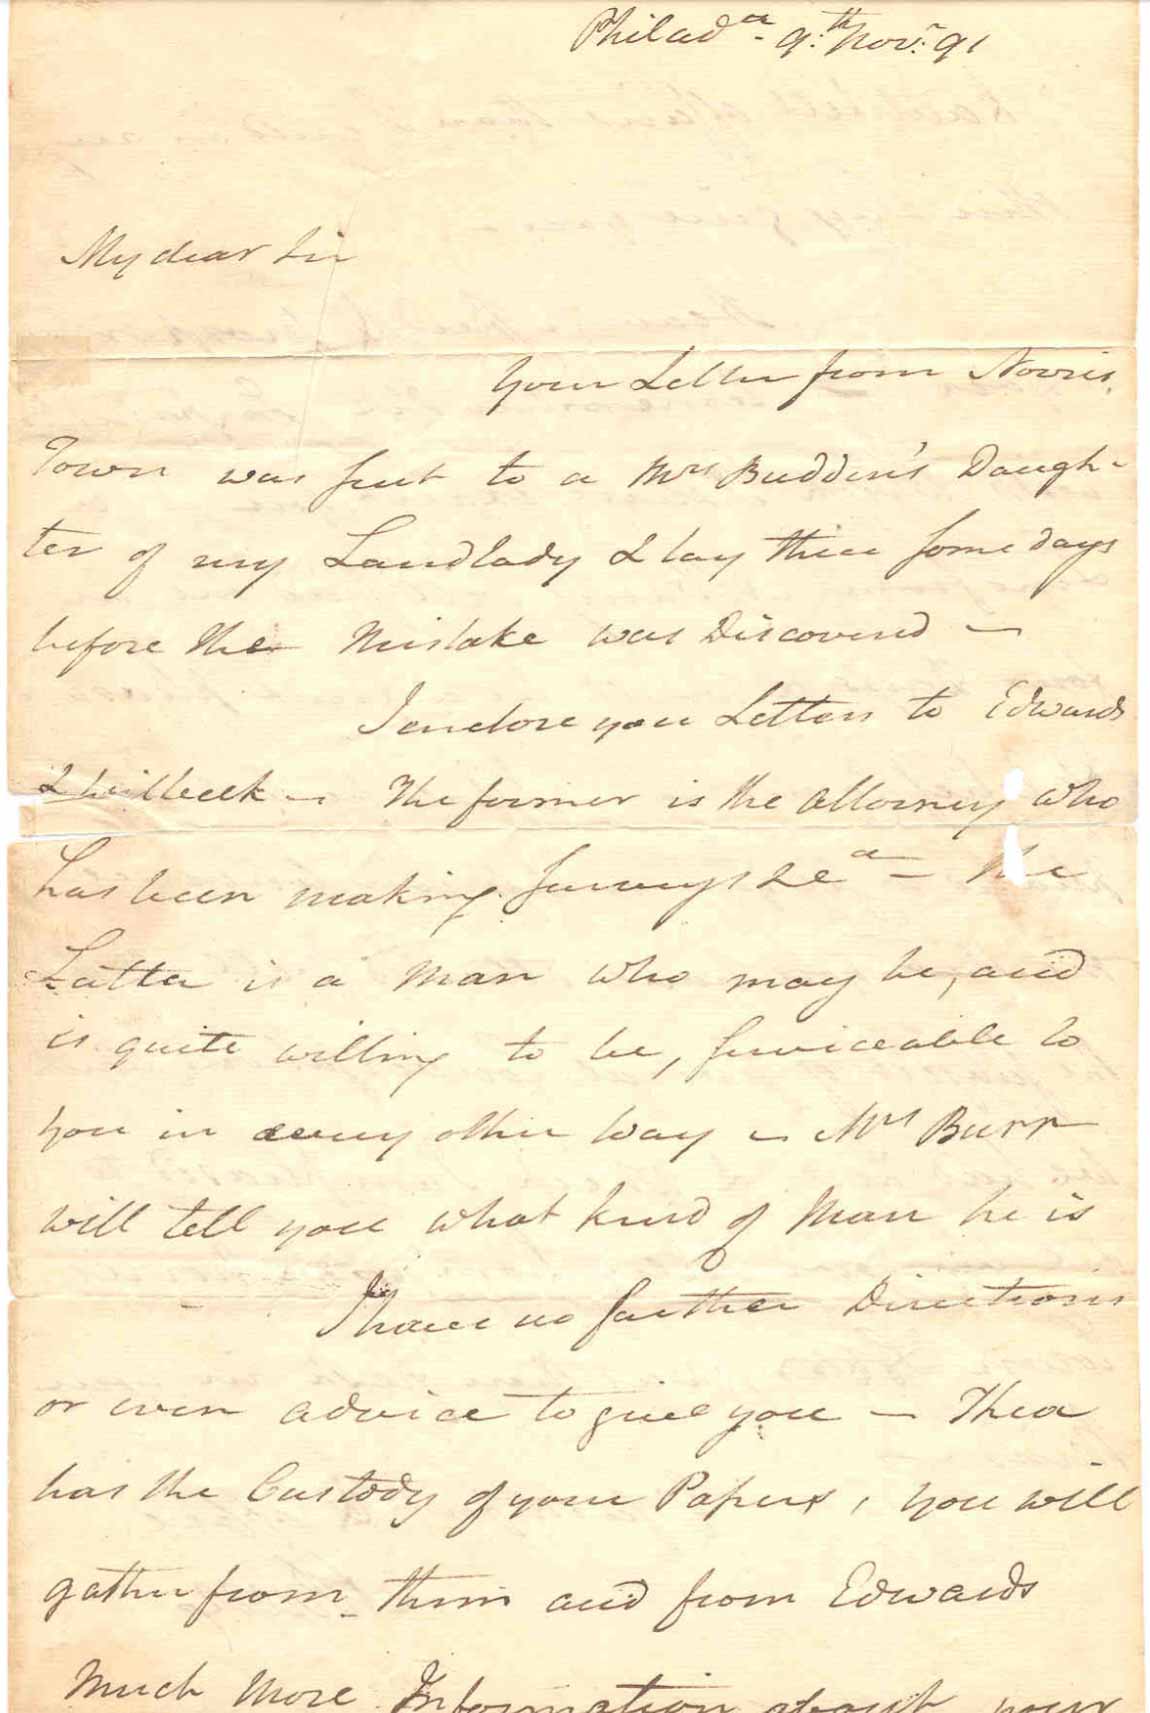 Philad.a 9.th Nov.r 91
My dear Sir
Your Letter from Norris,
Town was sent to a Mrs Budden's Daugh-
ter of my Landlady & lay there some days
before the Mistake was Discovered —
I enclose you Letters to Edwards
& — The former is the Attorney who
has been making surveys &ca — The
Latter is a Man who may be, and
is quite willing to be, serviceable to
you in every other way — Mrs Burr
will tell you what kind of Man he is
I have no further Directions
or even advice to give you — Thea
has the Custody of your Papers, you will
gather from them and from Edwards
Much More Information about your